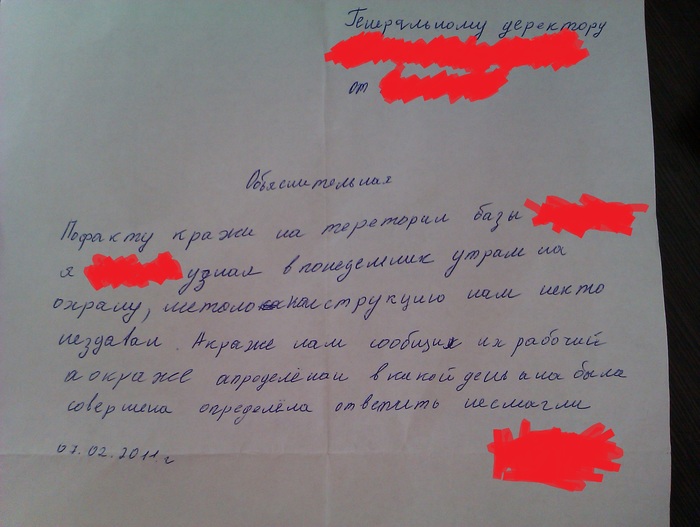 Генеральному деректору
от
Обяснительная
Пофакту кражи на тереторил базы
я узнал в понедельник утрам на
охрану, металоконструкцию нам некто
нездавал. Акраже нам сообщил их рабочий
аокраже определённа вкакой день ана была
совершена определёна ответить несмагли
07.02.2011 г